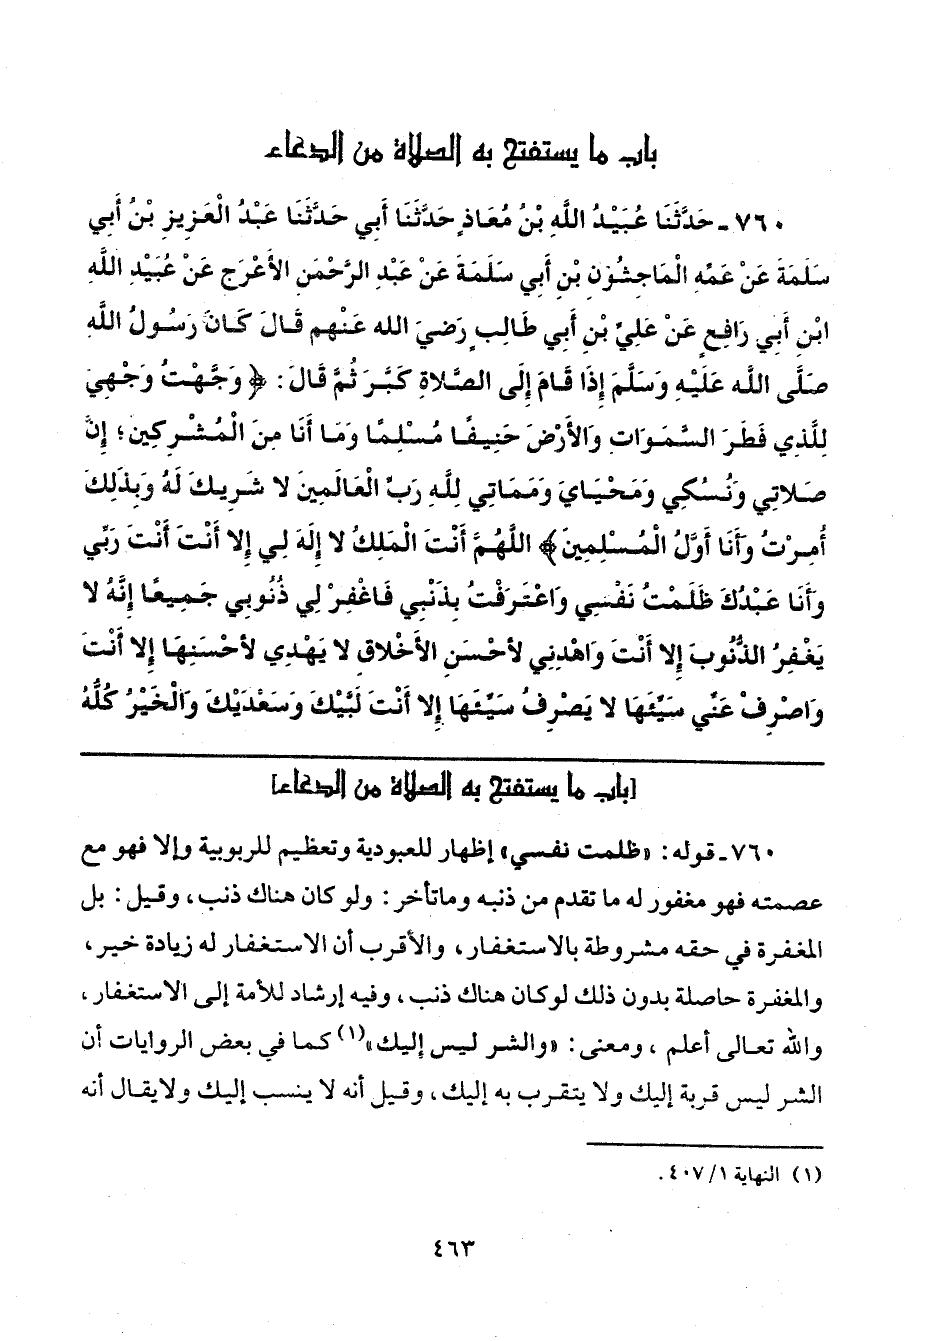 باب ما يستفتح به الصلاة من الدعاء
٧٦٠ـ حَدَّثَنَا عُبَيْدُ اللَّهِ بْنُ مُعَاذٍ حَدَّثَنَا أَبِي حَدَّثَنَا عَبْدُ الْعَزِيزِ بْنُ أَبِي
سَلَمَةَ عَنْ عَمِّهِ الْمَاجِشُونِ بْنِ أَبِي سَلَمَةَ عَنْ عَبْدِ الرَّحْمَنِ الأَعْرَجِ عَنْ عُبَيْدِ اللَّهِ
ابْنِ أَبِي رَافِعٍ عَنْ عَلِيِّ بْنِ أَبِي طَالِبٍ رَضِيَ الله عَنْهم قَالَ كَانَ رَسُولُ اللَّهِ
صَلَّى اللَّه عَلَيْهِ وَسَلَّمَ إِذَا قَامَ إِلَى الصَّلاةِ كَبَّرَ ثُمَّ قَالَ: ﴿ وَجَّهْتُ وَجْهِيَ
لِلَّذِي فَطَرَ السَّمَوَاتِ وَالأَرْضَ حَنِيفًا مُسْلِمًا وَمَا أَنَا مِنَ الْمُشْرِكِينَ؛ إِنَّ
صَلاتِي وَنُسُكِي وَمَحْيَايَ وَمَمَاتِي لِلَّهِ رَبِّ الْعَالَمِينَ لا شَرِيكَ لَهُ وَبِذَلِكَ
أُمِرْتُ وَأَنَا أَوَّلُ الْمُسْلِمِينَ﴾ اللَّهُمَّ أَنْتَ الْمَلِكُ لا إِلَهَ لِي إِلا أَنْتَ أَنْتَ رَبِّي
وَأَنَا عَبْدُكَ ظَلَمْتُ نَفْسِي وَاعْتَرَفْتُ بِذَنْبِي فَاغْفِرْ لِي ذُنُوبِي جَمِيعًا إِنَّهُ لا
يَغْفِرُ الذُّنُوبَ إِلا أَنْتَ وَاهْدِنِي لأَحْسَنِ الأَخْلاقِ لا يَهْدِي لأَحْسَنِهَا إِلا أَنْتَ
وَاصْرِفْ عَنِّي سَيِّئَهَا لا يَصْرِفُ سَيِّئَهَا إِلا أَنْتَ لَبَّيْكَ وَسَعْدَيْكَ وَالْخَيْرُ كُلُّهُ
[باب ما يستفتح به الصلاة من الدعاء]
٧٦٠ـ قوله: «ظلمت نفسي» إظهار للعبودية وتعظيم للربوبية وإلا فهو مع
عصمته فهو مغفور له ما تقدم من ذنبه وماتأخر: ولو كان هناك ذنب، وقيل: بل
المغفرة في حقه مشروطة بالاستغفار، والأقرب أن الاستغفار له زيادة خير،
والمغفرة حاصلة بدون ذلك لوكان هناك ذنب، وفيه إرشاد للأمة إلى الاستغفار،
والله تعالى أعلم ، ومعنى: «والشر ليس إليك»(١) كما في بعض الروايات أن
الشر ليس قربة إليك ولا يتقرب به إليك، وقيل أنه لا ينسب إليك ولايقال أنه
(١) النهاية ٤٠٧/١.
٤٦٣